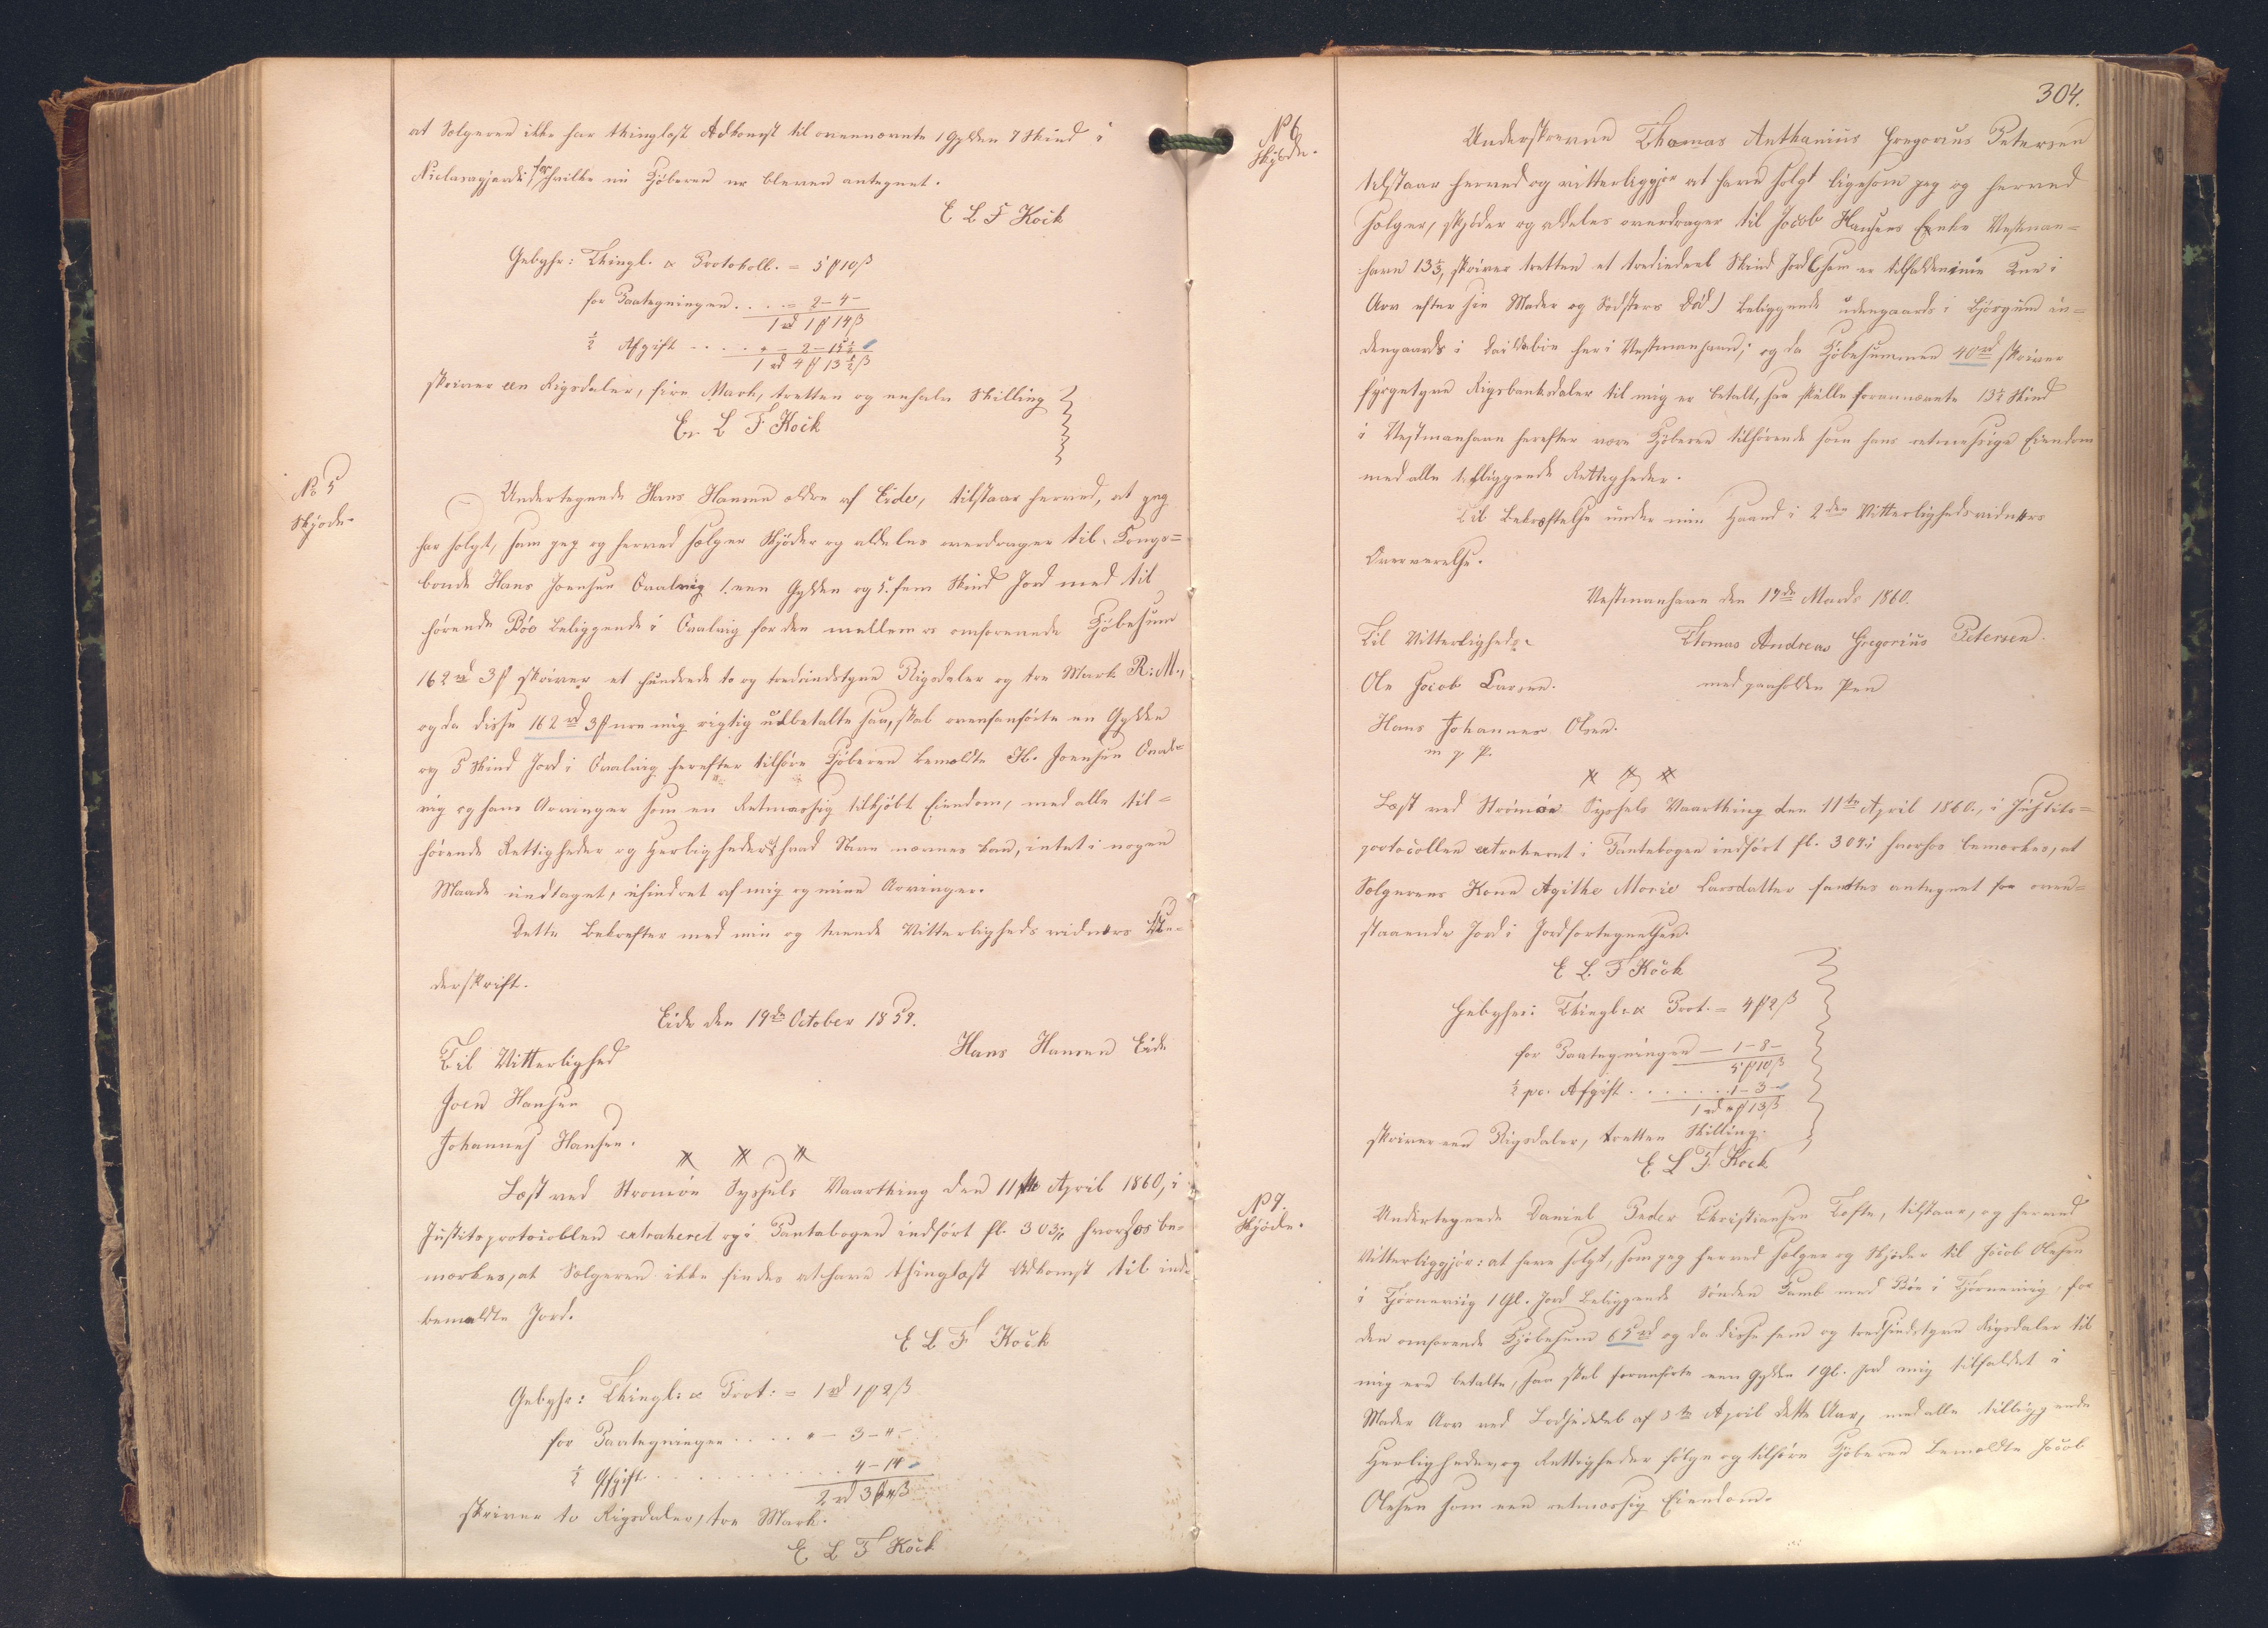 at Sælgeren ikke har thinglæst Adkomst til ovennævnte 1 Gylden 7 Skind i
Niclasagjerdi, for hvilke nu Kjøberen er bleven antegnet.
E L F Kock
Gebyhr: Thingl. & Protokoll. = 5 ₻ 10 β
for Paategningen . . . . = 2 - 4 -
1 rd 1 ₻ 14 β
½ Afgift . . . . " - 2 - 15½
1 rd 4 ₻ 13½ β
skriver een Rigsdaler, fire Mark, tretten og enhalv Skilling
E. L F Kock
No 5
Skjøde.
Undertegnede Hans Hansen ældre af Eide, tilstaar herved, at jeg
har solgt, som jeg og herved sælger Skjøder og aldeles overdrager til Kongs=
bonde Hans Joensen Qvalvig 1. een Gylden og 5. fem Skind Jord med til
hørende Böe beliggende i Qvalvig for den mellem os omforenede Kjøbesum
162 rd 3 ₻ skriver et hundrede to og tredsindstyve Rigsdaler og tre Mark R: M.,
og da disse 162 rd 3 ₻ ere mig rigtig udbetalte saa, skal ovenanførte en Gylden
og 5 Skind Jord i Qvalvig herefter tilhøre Kjøberen bemeldte H. Joensen Qval=
vig og hans Arvinger som en Retmæssig tilkjøbt Eiendom, med alle til=
hørende Rettigheder og Herligheder hvad Navn nævnes kan, intet i nogen
Maade undtaget, uhindret af mig og mine Arvinger.
Dette bekrefter med min og tvende Vitterligheds vidners Un=
derskrift.
Eide den 19de October 1859.
Til Vitterlighed
Hans Hansen Eide
Joen Hansen
Johannes Hansen.
Læst ved Strømöe Syssels Vaarthing den 11te April 1860, i
Justitsprotocollen extraheret og i Pantebogen indført fl. 303, hvorhos be=
mærkes, at Sælgeren ikke findes at have thinglæst Adkomst til ind=
bemeldte Jord.
E L F Kock
Gebyhr: Thingl: & Prot: = 1 rd 1 ₻ 2 β
for Paategningen . . . . " - 3 - " -
½ Afgift . . . . . . . . . 4 - 14
2 rd 3 ₻ " β
skriver to Rigsdaler, tre Mark.
E L F Kock
304.
N 6
Skjøde.
Underskrevne Thomas Anthanius Gregorius Petersen
tilstaar herved og vitterliggjør at have solgt ligesom jeg og herved
sælger, skjøder og aldeles overdrager til Jacob Hansens Enke Vestman=
havn 13⅓, skriver tretten et trediedeel Skind Jord (som er tilfalden min Kone i
Arv efter sin Moder og Sødsters Död) beliggende udengaards i Ljørgum in=
dengaards i her i Vestmanhavn; og da Kjøbesummen 40 rd skriver
fyrgetyve Rigsbankdaler til mig er betalt, saa skulle forannævnte 13⅓ Skind
i Vestmanhavn herefter være Kjøberen tilhørende som hans retmæssige Eiendom
med alle tilliggende Rettigheder.
Til Bekræftelse under min Haand i 2den Vitterlighedsvidners
Overværelse.
Vestmanhavn den 17de Marts 1860.
Til Vitterlighed:
Thomas Andreas Gregorius Petersen
Ole Jacob Larsen.
med paaholden Pen
Hans Johannes Olsen.
m. p. P.
Læst ved Strömöe Syssels Vaarthing den 11te April 1860., i Justits=
protocollen extraheret i Pantebogen indført fl. 304; hvorhos bemærkes, at
Sælgerens Kone Agithe Marie Larsdatter fandtes antegnet for oven=
staaende Jord i Jordfortegnelsen.
E L. F Kock
Gebyhr: Thingl: & Prot. = 4 ₻ 2 β
for Paategningen — 1 - 8 -
5 ₻ 10 β
½ pc. Afgift . . . . . . . 1 - 3 -
1 rd " ₻ 13 β
skriver een Rigsdaler, tretten Skilling.
E L F. Kock
N 7.
Skjøde.
Undertegnede Daniel Peder Christiansen Tofte, tilstaar, og herved
Vitterliggjør: at have solgt, som jeg herved sælger og Skjøder til Jacob Olesen
i Tjørneviig 1 Gl. Jord beliggende Sönden med Böe i Tjørneviig for
den omforende Kjøbesum 65 rd og da disse fem og tredsindstyve Rigsdaler til
mig ere betalte, saa skal foranførte een Gylden 1 Gl. Jord mig tilfaldet i
Moder Arv ved Lodseddel af 3te April dette Aar, med alle tilliggende
Herligheder og Rettigheder følge og tilhøre Kjøberen bemeldte Jacob
Olesen som een retmæssig Eiendom.